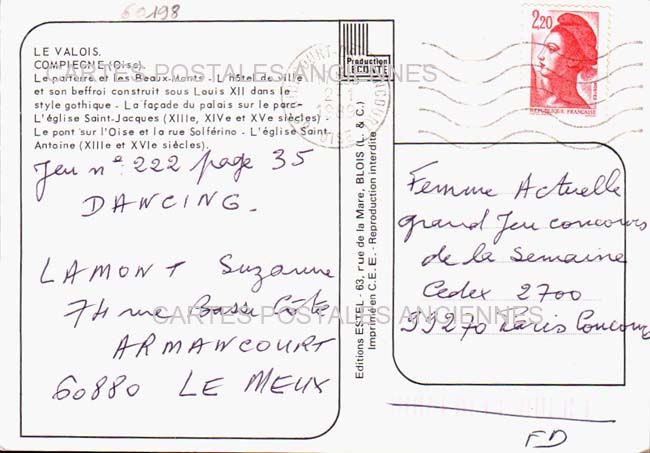 60198
LE VALOIS.
COMPIEGNE (Oise).
Le parterre et les Beaux-Monts - L'hôtel de ville
et son beffroi construit sous Louis XII dans le
style gothique - La façade du palais sur le parc-
L'église Saint-Jacques (XIIIe, XIVe et XVe siècles) -
Le pont sur l'Oise et la rue Solférino - L'église Saint-
Antoine (XIIIe et XVIe siècles).
CARTES POSTALES ANCIENNES
Jeu n° 222 page 35
DANCING.
LAMONT Suzanne
74 rue Basse Côte
CARTES POSTALES ANCIENNES
ARMANCOURT
60880 LE MEUX
Production
LECONTE
Editions ESTEL - 63, rue de la Mare, BLOIS (L. & C.)
Imprimé en C.E.E. - Reproduction interdite
2,20
REPUBLIQUE FRANÇAISE
Femme Actuelle
grand Jeu concours
de la Semaine
Cedex 2700
99270 Paris Concours
FD